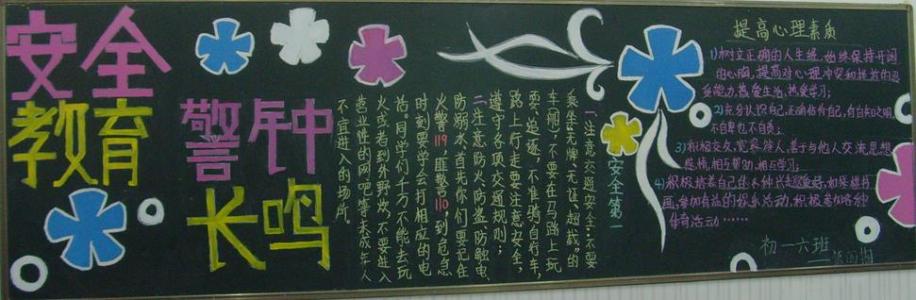 安全
教育
警钟
长鸣
安全第一
一、注意交通安全:不要
乘坐“无牌”“无证”“超载”的
车辆,不要在马路上玩
耍、追逐,不准骑自行车,
路上行走要注意安全,
遵守各项交通规则;
二、注意防火、防盗、防触电、
防溺水,首先你们要记住
火警119、匪警110,到危急
时刻要学会打相应的电
话。同学们千万不能去玩
火或者到外野炊,不要进入
营业性的网吧等未成年人
不宜进入的场所。
提高心理素质
1)树立正确的人生观,始终保持开阔
的心胸,提高对心理冲突和挫折的
受能力,热爱生活,热爱学习;
2)充分认识自己,正确评价自己,有自知之明,
不自卑也不自负;
3)积极交友,宽容待人,善于与他人交流思想
感情,相互帮助,相互学习;
4)积极培养自己的各种兴趣爱好,如琴棋书
画,参加有益的娱乐活动,积极参加各种
体育活动……
初一六班